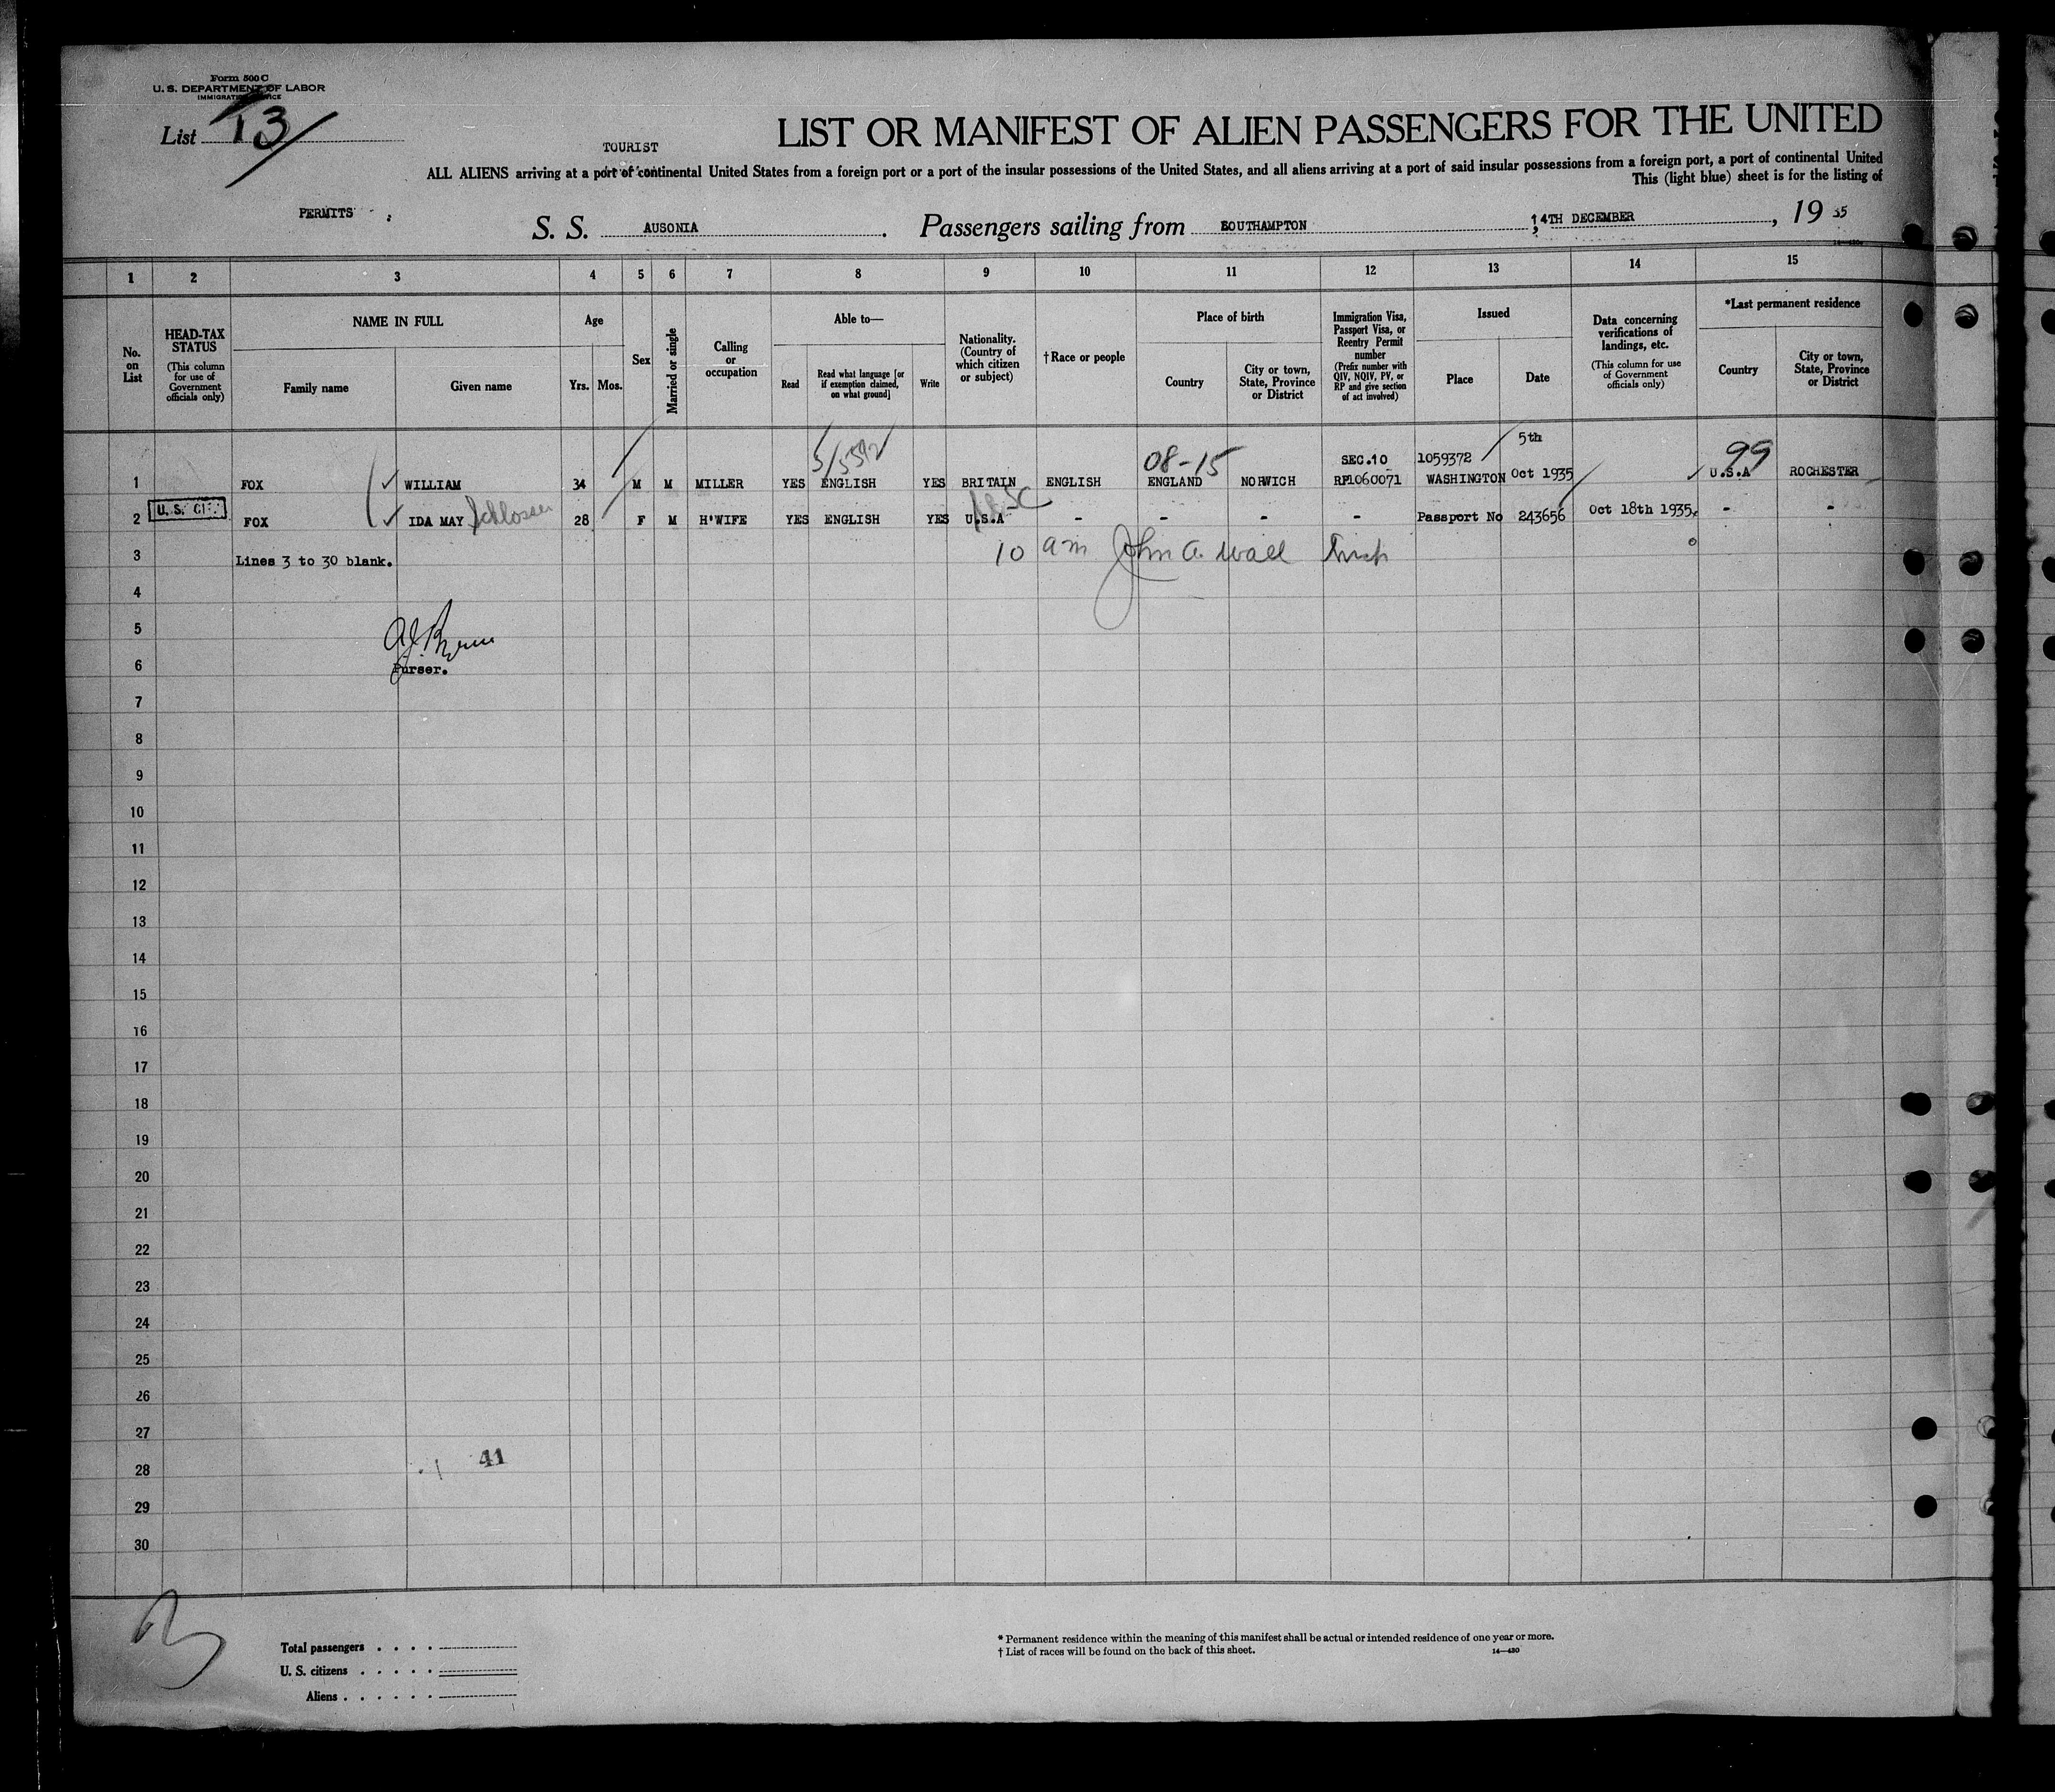 Form 500 C
U. S. DEPARTMENT OF LABOR
IMMIGRATION SERVICE
List 13
LIST OR MANIFEST OF ALIEN PASSENGERS FOR THE UNITED
TOURIST
ALL ALIENS arriving at a port of continental United States from a foreign port or a port of the insular possessions of the United States, and all aliens arriving at a port of said insular possessions from a foreign port, a port of continental United
This (light blue) sheet is for the listing of
PERMITS
S. S. AUSONIA. Passengers sailing from SOUTHAMPTON, 14TH DECEMBER, 19 35
1 2 3 4 5 6 7 8 9 10 11 12 13 14 15
No. on List
HEAD-TAX STATUS (This column for use of Government officials only)
NAME IN FULL
Family name Given name
Age
Yrs. Mos.
Sex
Married or single
Calling or occupation
Able to—
Read
Read what language [or if exemption claimed, on what ground]
Write
Nationality. (Country of which citizen or subject)
† Race or people
Place of birth
Country
City or town, State, Province or District
Immigration Visa, Passport Visa, or Reentry Permit number (Prefix number with QIV, NQIV, PV, or RP and give section of act involved)
Issued
Place Date
Data concerning verifications of landings, etc. (This column for use of Government officials only)
*Last permanent residence
Country
City or town, State, Province or District
08-15 SEC.10 1059372 5th 99
1 FOX WILLIAM 34 M M MILLER YES ENGLISH YES BRITAIN ENGLISH ENGLAND NORWICH RP1060071 WASHINGTON Oct 1935 U.S.A ROCHESTER
2 U.S. CIT. FOX IDA MAY Schlosser 28 F M H'WIFE YES ENGLISH YES U.S.A - - - - Passport No 243656 Oct 18th 1935. - -
3 Lines 3 to 30 blank. 10 am John A. Wall Insp
4
5
6 Purser.
7
8
9
10
11
12
13
14
15
16
17
18
19
20
21
22
23
24
25
26
27
28 41
29
30
Total passengers . . . .
U. S. citizens . . . . .
Aliens . . . . . .
* Permanent residence within the meaning of this manifest shall be actual or intended residence of one year or more.
† List of races will be found on the back of this sheet.
14—430